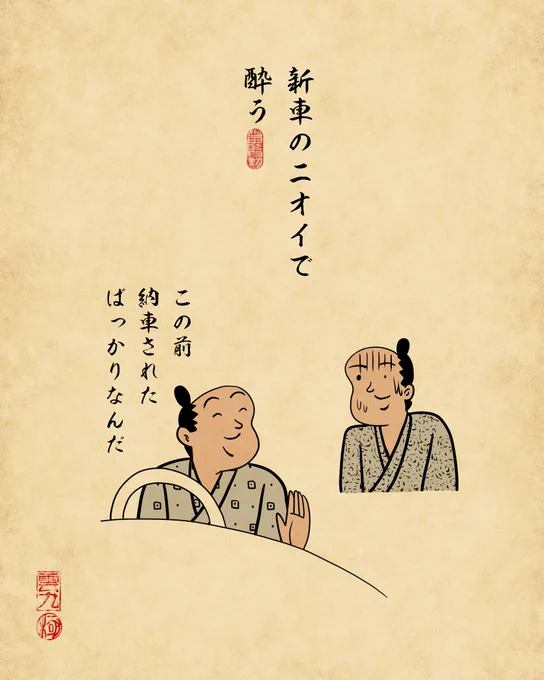 新車のニオイで
酔う
この前
納車された
ばっかりなんだ